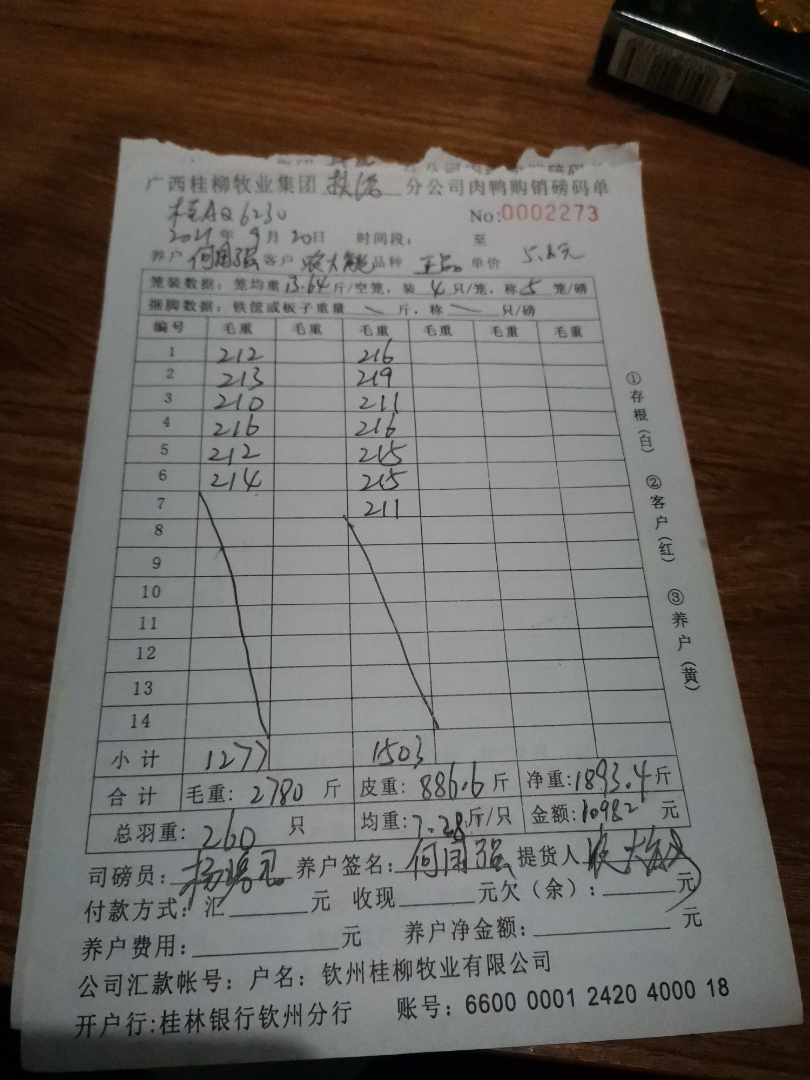 广西桂柳牧业集团 扶绥 分公司肉鸭购销磅码单
桂AQ6230 No:0002273
2021年9月20日 时间段: 至
养户 何国强 客户 品种 正品 单价 5.8元
笼装数据:笼均重13.64斤/空笼,装4只/笼,称5笼/磅
捆脚数据:铁筐或板子重量 斤,称 只/磅
编号 毛重 毛重 毛重 毛重 毛重 毛重
1 212 216
2 213 219
3 210 211
4 216 216
5 212 215
6 214 215
7 211
8
9
10
11
12
13
14
小计 1277 1503
合计 毛重:2780斤 皮重:886.6斤 净重:1893.4斤
总羽重:260只 均重:7.28斤/只 金额:10982元
司磅员: 养户签名:何国强 提货人
付款方式:汇 元 收现 元欠(余): 元
养户费用: 元 养户净金额: 元
公司汇款帐号:户名:钦州桂柳牧业有限公司
开户行:桂林银行钦州分行 账号:6600 0001 2420 4000 18
①存根(白) ②客户(红) ③养户(黄)